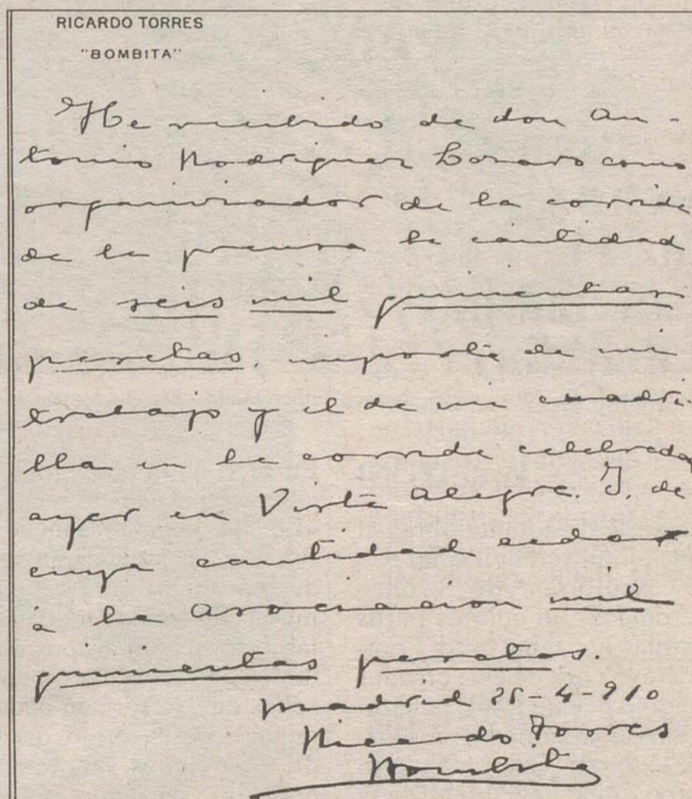 RICARDO TORRES
"BOMBITA"
He recibido de don An-
tonio Rodriguez Lázaro como
organizador de la corrida
de la prensa la cantidad
de seis mil quinientas
pesetas, importe de mi
trabajo y el de mi cuadri-
lla en la corrida celebrada
ayer en Vista Alegre. Y, de
cuya cantidad cedo
á la Asociacion mil
quinientas pesetas.
Madrid 25-4-910
Ricardo Torres
Bombita